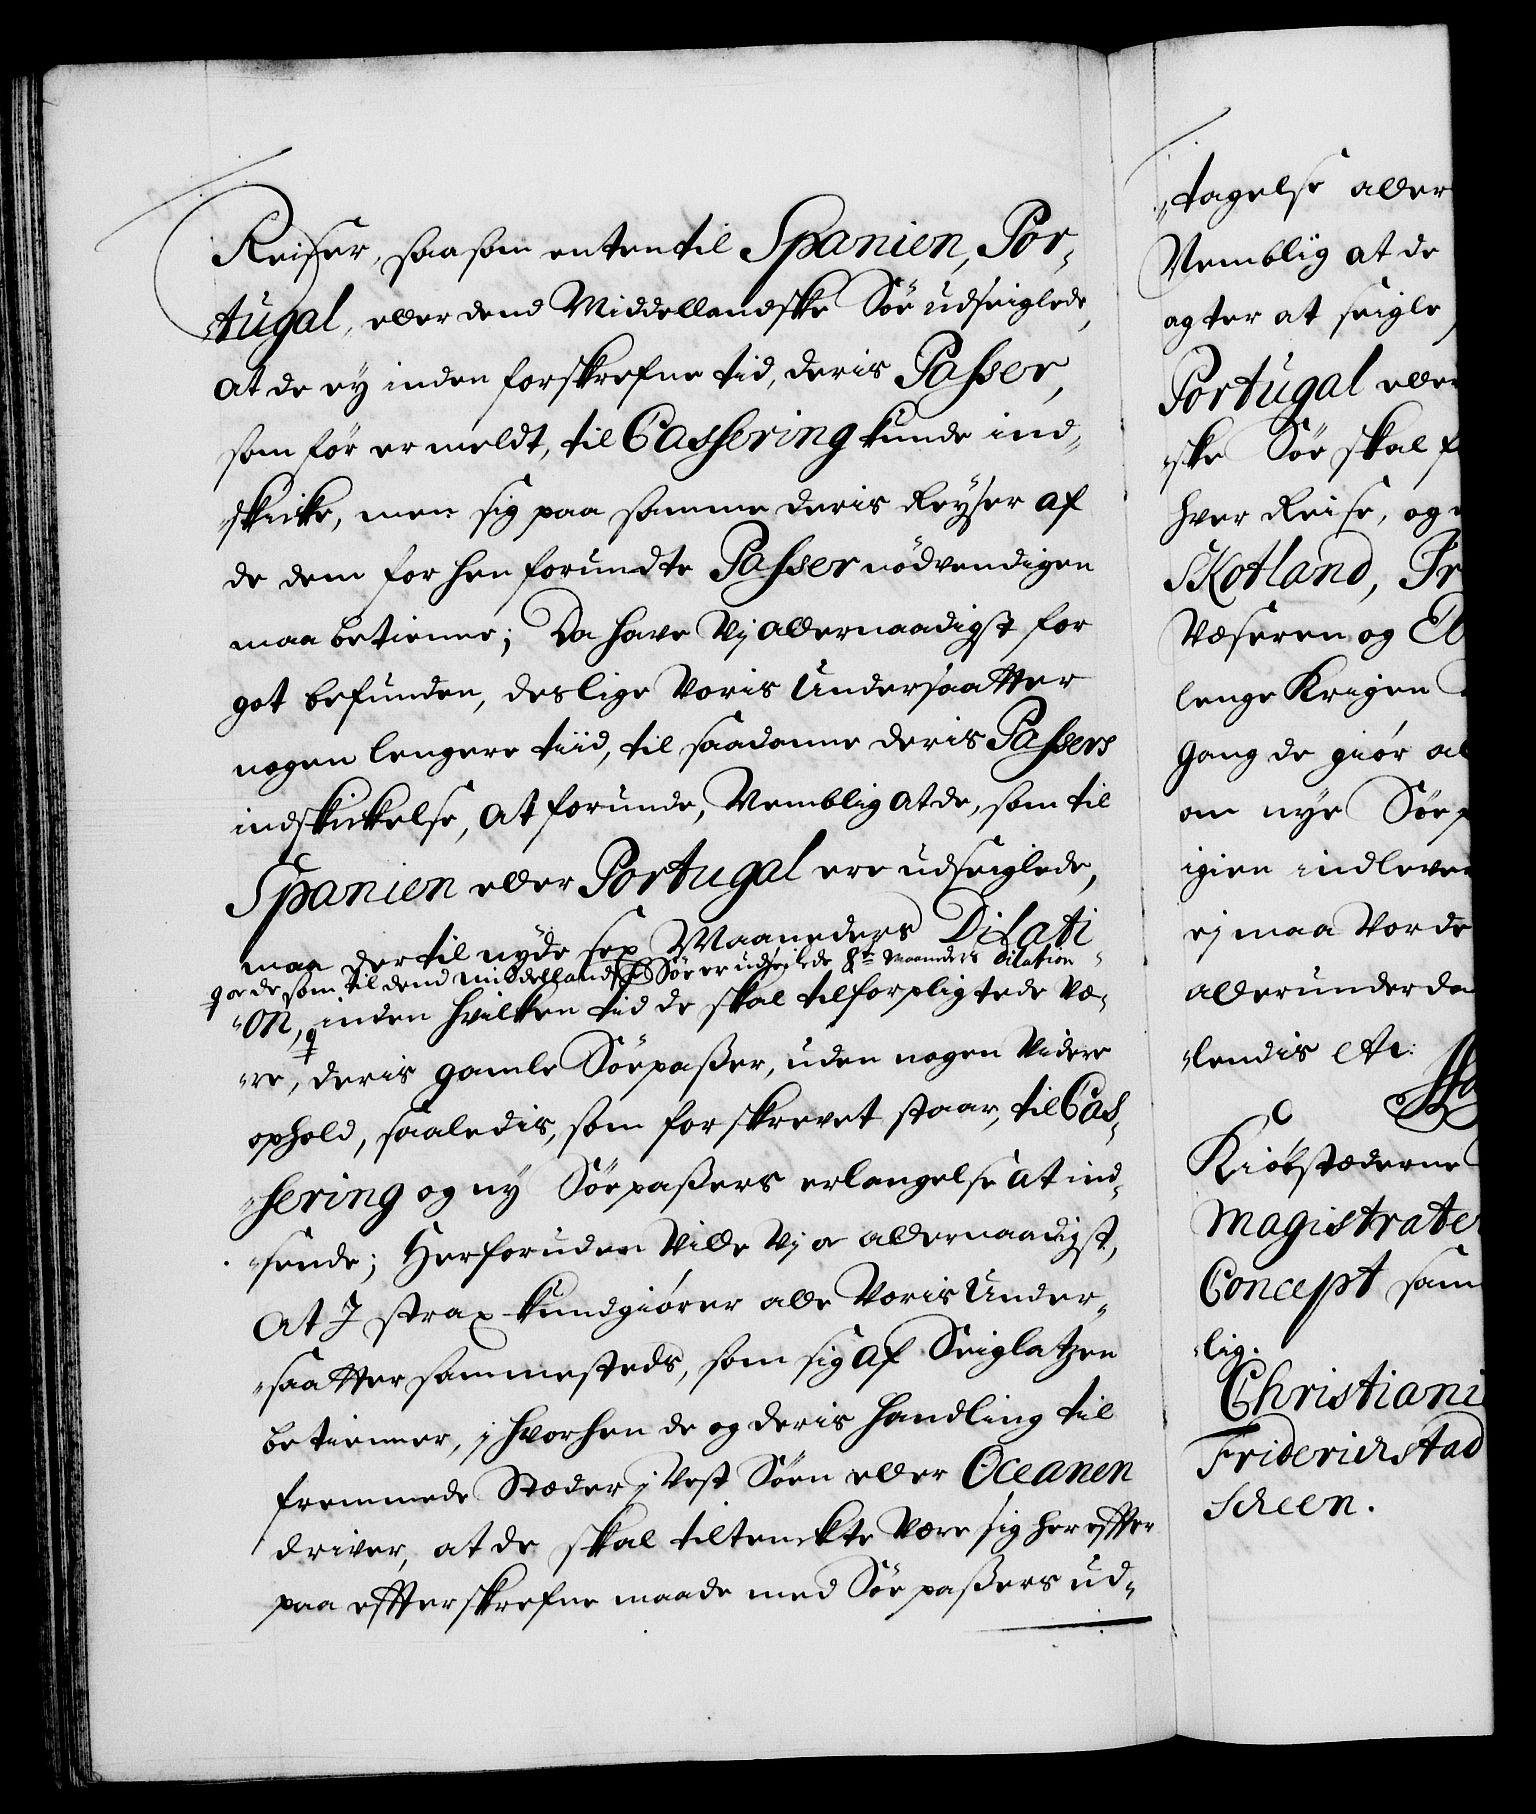 Reiser, saasom enten til Spanien, Por-
-tugal, eller dend Middellandske Söe udseiglede,
at de ey inden forskrefne tid, deris Passer,
som för er meldt, til Cassering kunde ind-
-skicke, men sig paa samme deris Reyser af
de dem forhen forundte Passer nödvendigen
maa betienne; Da have Vj allernaadigst for
got befunden, deslige Voris Undersaatter
nogen lengere tiid, til saadanne deris Passers
indskickelse, at forunde, Nemblig at de, som til
Spanien eller Portugal ere udseiglede,
maa dertil nyde sex Maaneders Dilati-
og de som til dend middellandske Söe er udseilede 8te Maaneders dilation
-on, inden hvilken tid de skal tilforpligtede væ-
-re, deris gamle Söepasser, uden nogen videre
ophold, saaledis, som forskrevet staar, til Cas-
-sering og ny Söepassers erlangelse at ind-
-sende; Herforuden Ville Vj oc allernaadigst,
at I strax kundgiörer alle Voris Under-
-saatter sammesteds, som sig af Seiglatzen
betienner, i hvorhen de og deris handling til
fremmede Stæder i Vest Söen eller Oceanen
driver, at de skal tiltenckte være sig herefter
paa efterskrefne maade med Söepassers ud-
-tagelse aller
Nemblig at de
agter at seigle
Portugal eller
-ske Söe skal f
hver Reise, og
Skotland, Fr
Væseren og El
lenge Krigen
gang de giör al
om nye Söep
igien indlever
ej maa vorde
allerunderda
-lendis etc:
Kiöbstæderne
Magistrater
Concept sam
-lig.
Christiani
Friderichstad
Scheen.